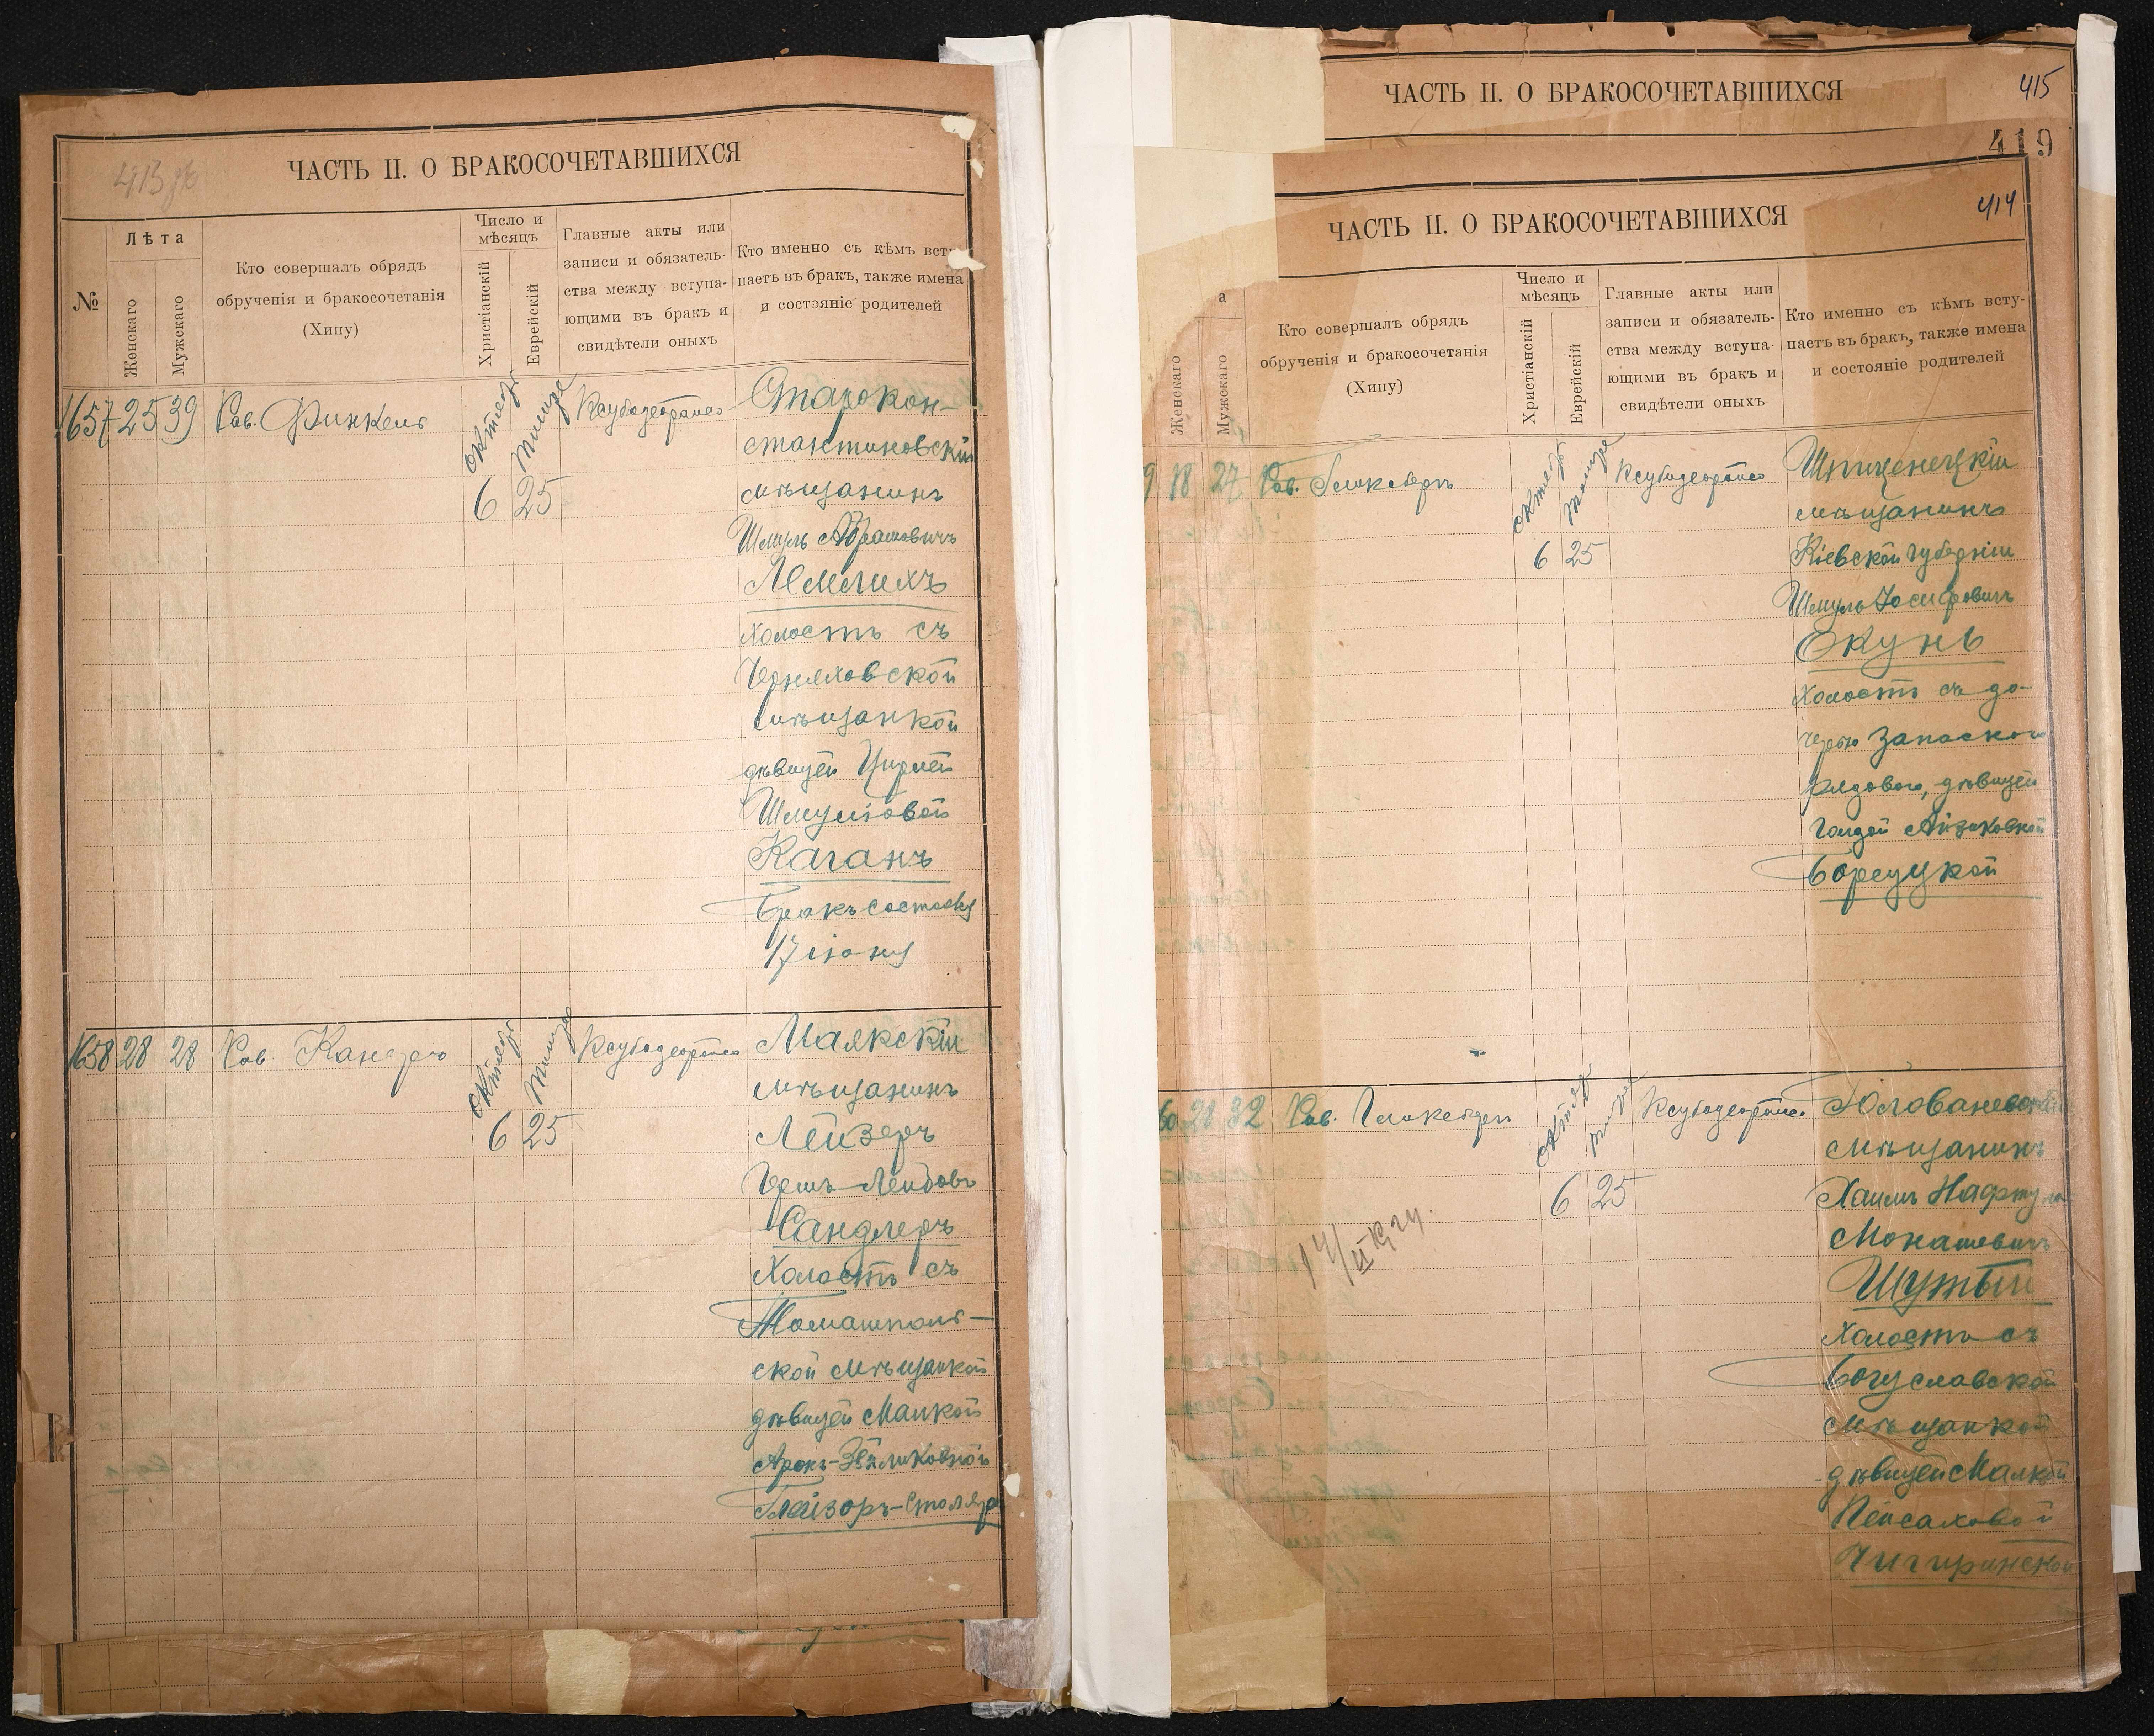 413 об
ЧАСТЬ II. О БРАКОСОЧЕТАВШИХСЯ
№
Лѣта
Женскаго
Мужскаго
Кто совершалъ обрядъ
обрученія и бракосочетанія
(Хипу)
Число и
мѣсяцъ
Христіанскій
Еврейскій
Главные акты или
записи и обязатель-
ства между вступа-
ющими въ бракъ и
свидѣтели оныхъ
Кто именно съ кѣмъ всту
паетъ въ бракъ, также имена
и состояніе родителей
1657 25 39 Рав. Финкель
октяб
6 25
Старокон-
стантиновскій
мѣщанинъ
Шмуль Абрамовичъ
холостъ съ
Черняховской
мѣщанкой
дѣвицей Цирлей
Шмулевой
Каганъ
Бракъ состоялся
17 іюня
1658 28 28 Рав. Канеръ
октяб
6 25
Маякскій
мѣщанинъ
Лейзеръ
Гершъ-Лейбовъ
Сандлеръ
Холостъ съ
Томашполь-
ской мѣщанкой
дѣвицей Малкой
Арон-Зейликовной
Глейзоръ-Столяръ
ЧАСТЬ II. О БРАКОСОЧЕТАВШИХСЯ
415
419
414
ЧАСТЬ II. О БРАКОСОЧЕТАВШИХСЯ
а
Женскаго
Мужскаго
Кто совершалъ обрядъ
обрученія и бракосочетанія
(Хипу)
Число и
мѣсяцъ
Христіанскій
Еврейскій
Главные акты или
записи и обязатель-
ства между вступа-
ющими въ бракъ и
свидѣтели оныхъ
Кто именно съ кѣмъ всту-
паетъ въ бракъ, также имена
и состояніе родителей
9 18 27 Рав. Гликсбергъ
октяб
6 25
мѣщанинъ
Кіевской губерніи
Шмуль Іосифовичъ
Окунь
холостъ съ до-
черью запасного
рядового, дѣвицей
Голдой Айзиковной
Борсуцкой
60 28 32 Рав. Гликсбергъ
октяб
6 25
Голованевскій
мѣщанинъ
Хаимъ Нафтула
Монашевичъ
Шутый
Холостъ съ
Богуславской
мѣщанкой
дѣвицей Малкой
Пейсаховой
Чигиринской